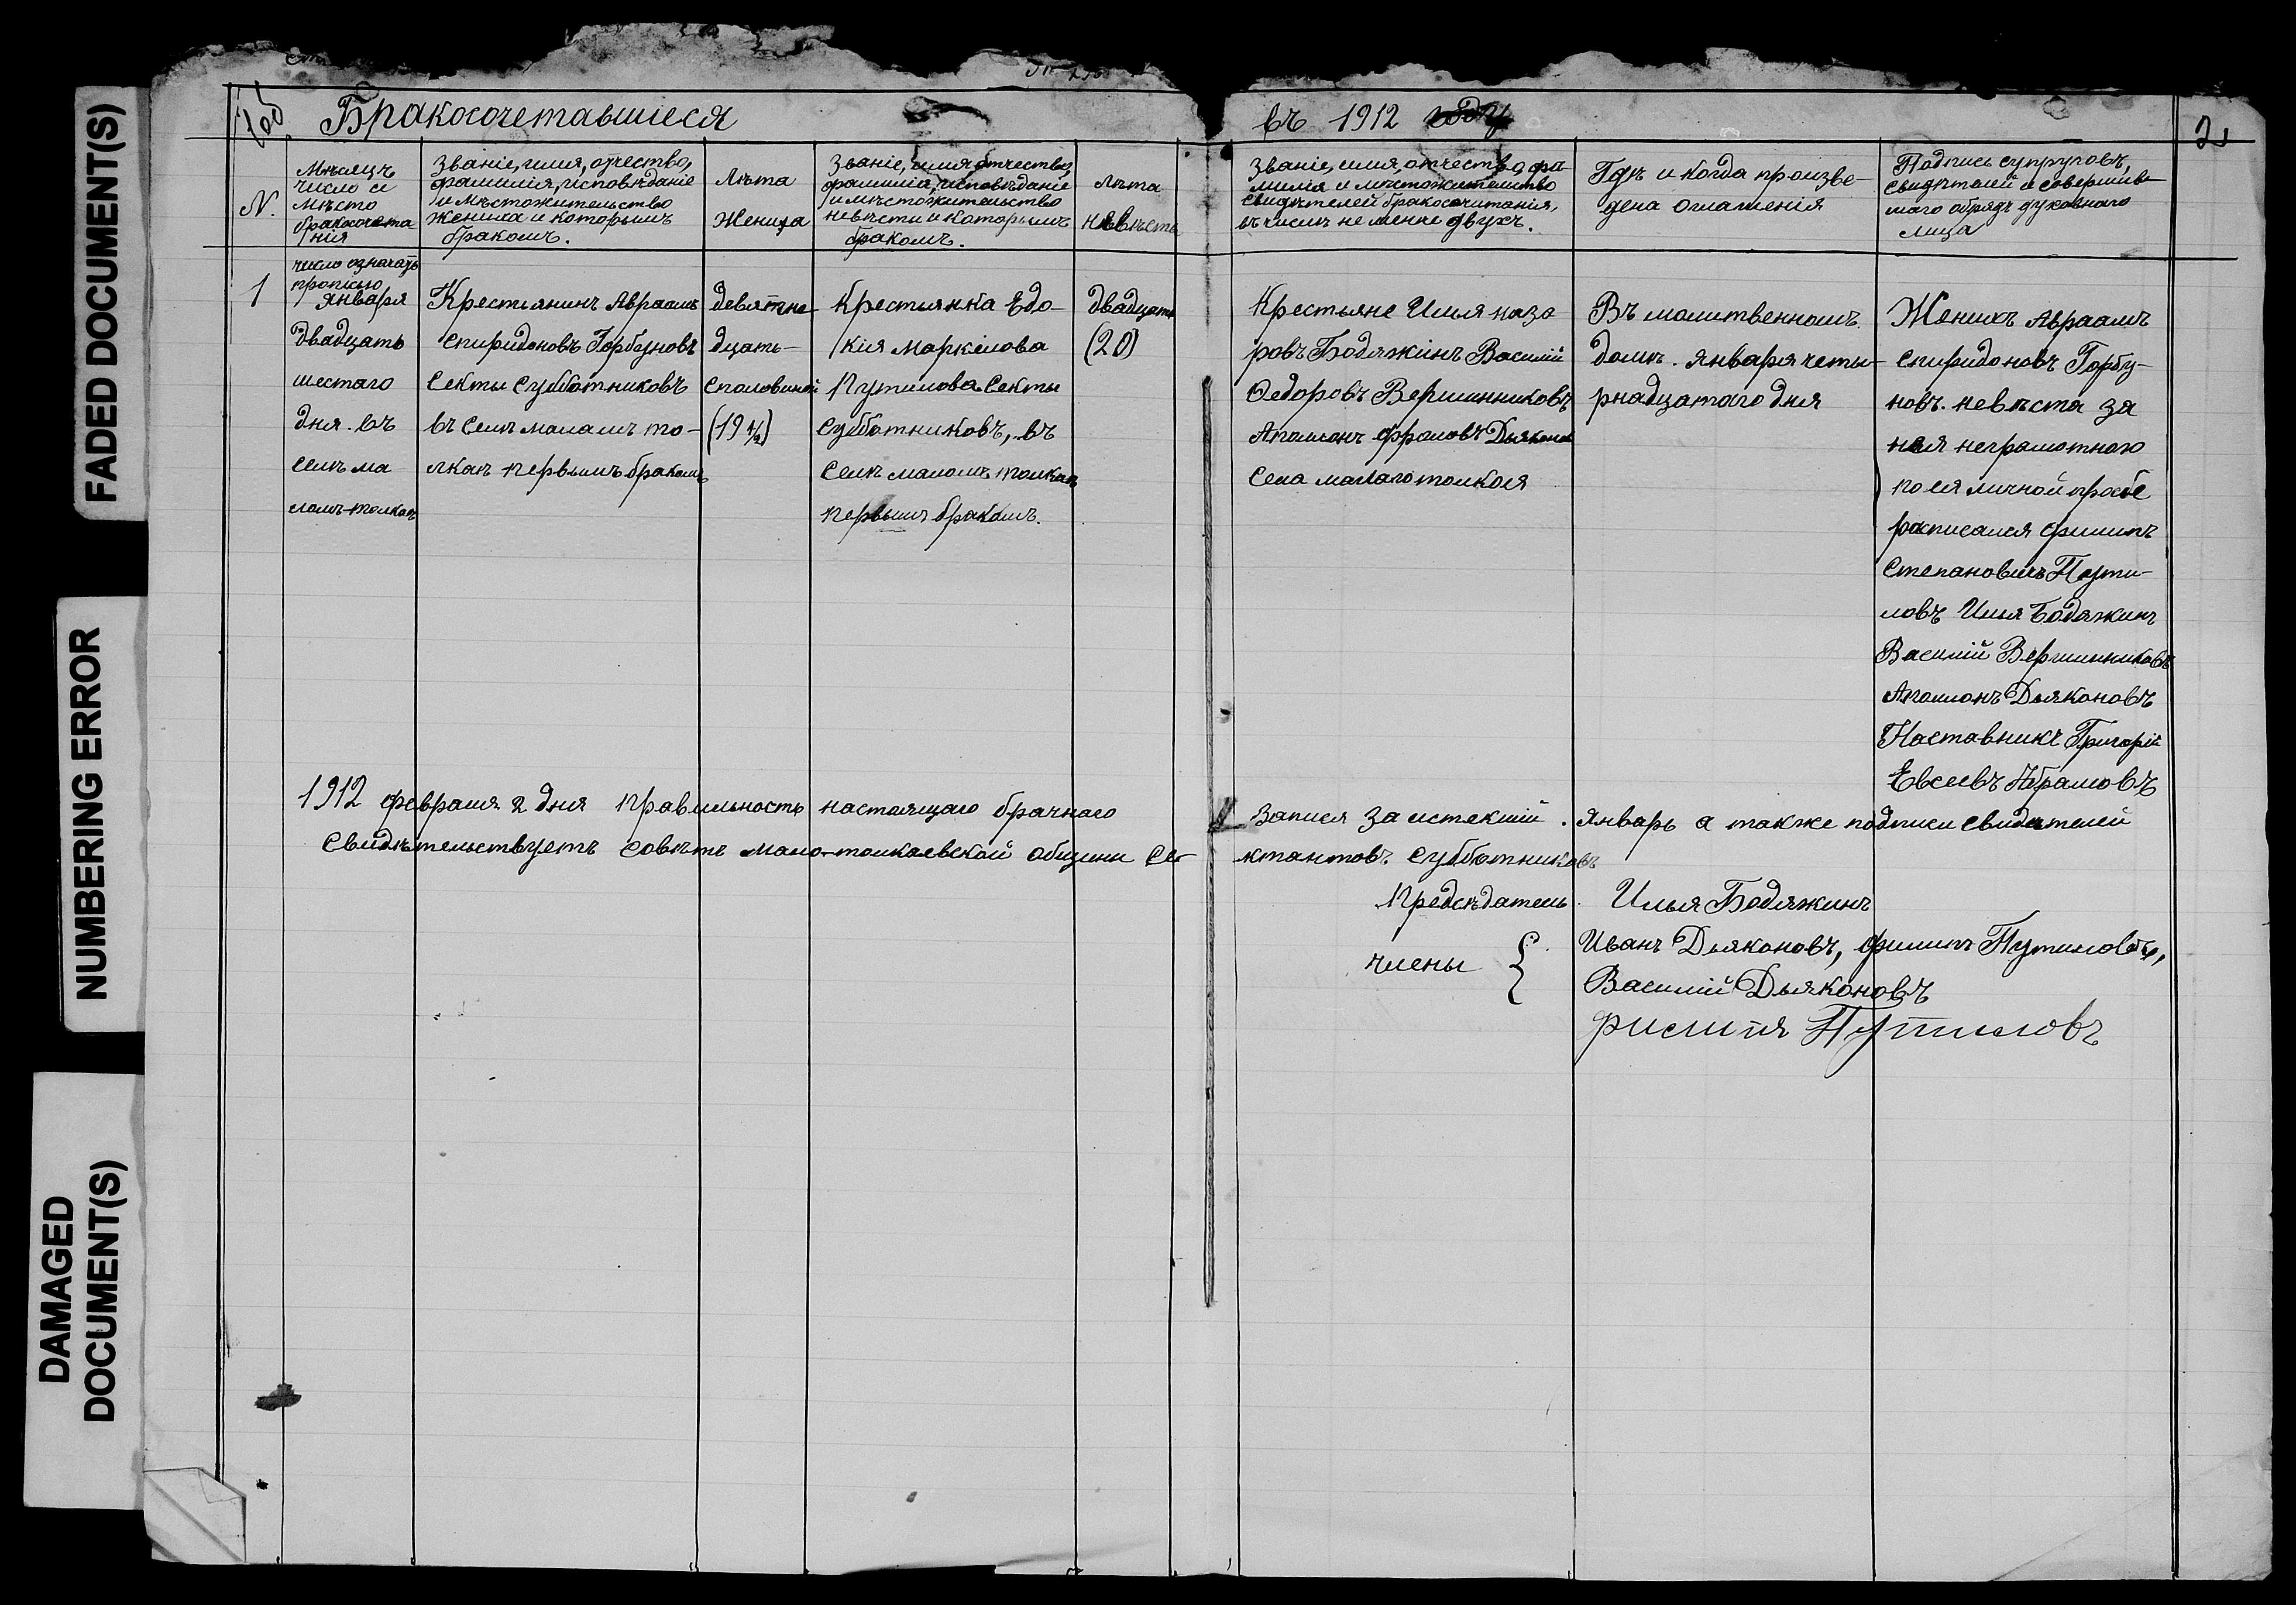 Бракосочетавшіеся
въ 1912 году
2
N.
Мѣсяцъ
число и
мѣсто
бракосочета
нія
Званіе, имя, отчество,
фамилія, исповѣданіе
и мѣстожительство
жениха и которымъ
бракомъ.
Лѣта
Жениха
Званіе, имя, отчество,
фамилія, исповѣданіе
и мѣстожительство
невѣсты и которымъ
бракомъ.
Лѣта
Невѣсты
Званіе, имя, отчество, фа-
милія и мѣстожительство
свидѣтелей бракосочитанія,
въ числѣ не менѣе двухъ.
Гдѣ и когда произве-
дена оглашенія
Подпись супруговъ,
свидѣтелей и совершив-
шаго обрядъ духовнаго
лица
число означать
прописью
1
Января
двадцать
шестаго
дня. въ
селѣ ма
ломъ-толкаѣ
Крестьянинъ Авраамъ
Спиридоновъ Горбуновъ
Секты Субботниковъ
въ селѣ маломъ то-
лкаѣ первымъ бракомъ
девятне-
дцать-
споловиной
(19 ½)
Крестьянка Евдо-
кія Маркелова
Путилова Секты
Субботниковъ, въ
Селѣ маломъ толкаѣ
первымъ бракомъ.
двадцать
(20)
Крестьяне Илья наза
ровъ Бодяжинъ Василій
Ѳедоровъ Вершинниковъ
Аполлонъ Фроловъ Дьяконов
Села малаго толкая
Въ молитвенномъ
домѣ. Января четы-
рнадцатаго дня
Женихъ Авраамъ
Спиридоновъ Горбу-
новъ. невѣста за
нея неграмотною
по ея личной прозбе
росписался Филипъ
Степановичъ Пути-
ловъ Илья Бодяжинъ
Василій Вершинниковъ
Аполлонъ Дьяконовъ
Наставникъ Григорій
Евсеевъ Абрамовъ
1912 февраля 2 дня правильность настоящаго брачнаго записа за истекшій. Январь а также подписи свидѣтелей
Свидѣтельствуетъ совѣтъ мало-толкаевской общины се-ктантовъ субботниковъ
Предсѣдатель. Илья Бодяжинъ
члены { Иванъ Дьяконовъ, Филипъ Путиловъ,
Василій Дьяконовъ
Филипъ Путиловъ
FADED DOCUMENT(S)
NUMBERING ERROR
DAMAGED
DOCUMENT(S)